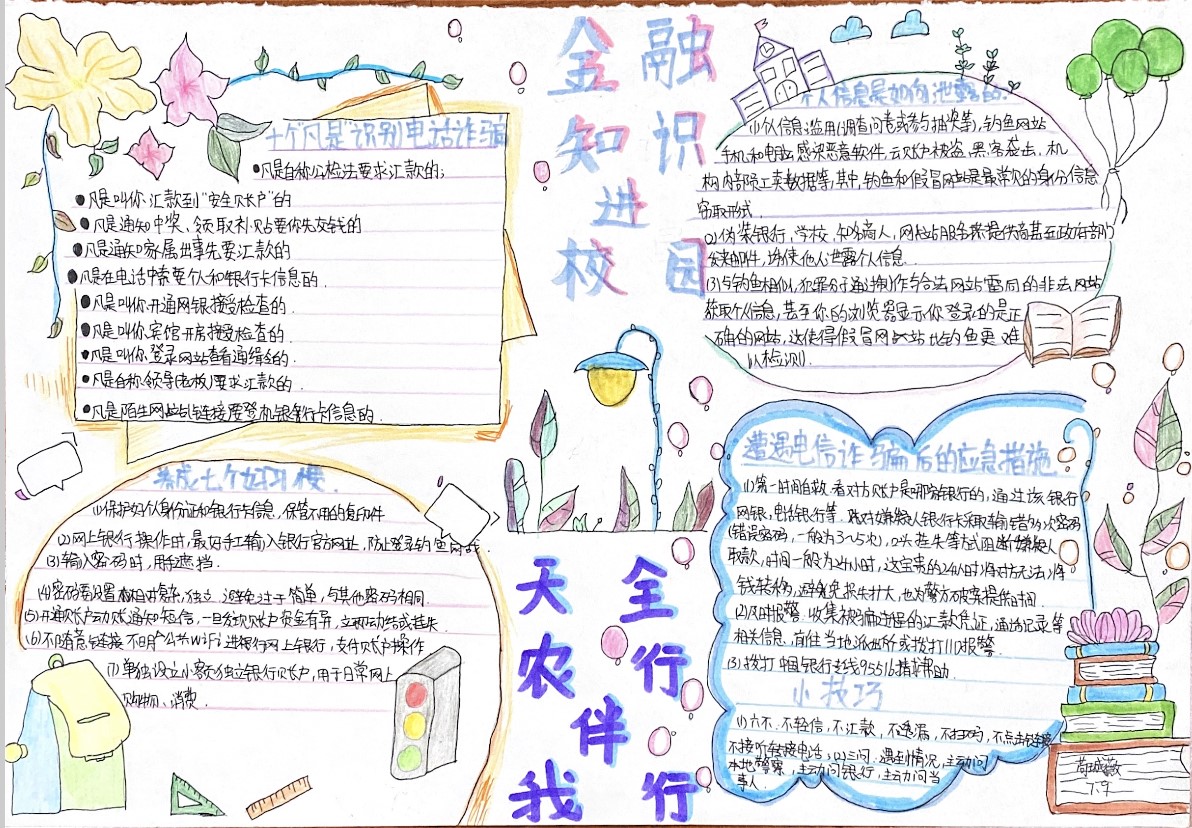 金融
知识
进
校园
十个"凡是"识别电话诈骗
●凡是自称公检法要求汇款的;
●凡是叫你汇款到"安全账户"的
●凡是通知中奖、领取补贴要你先交钱的
●凡是通知"家属出事先要汇款的
●凡是在电话中索要个人和银行卡信息的.
●凡是叫你开通网银接受检查的.
●凡是叫你宾馆开房接受检查的.
●凡是叫你登录网站查看通缉令的.
●凡是自称领导(老板)要求汇款的.
●凡是陌生网站链接要登机银行卡信息的.
养成七个好习惯.
(1)保护好个人身份证和银行卡信息,保管不用的复印件
(2)网上银行操作时,最好手工输入银行官方网址,防止登录钓鱼网站.
(3)输入密码时,用手遮挡.
(4)密码要设置相对复杂,独立,避免过于简单,与其他密码相同.
(5)开通账户动账通知短信,一旦发现账户资金有异,立即冻结或挂失.
(6)不随意链接不明公共wifi进行网上银行,支付账户操作
(7)单独设立小额独立银行账户,用于日常网上
购物、消费.
个人信息是如何泄露的.
(1)个人信息滥用(调查问卷或参与抽奖等),钓鱼网站
手机和电脑感染恶意软件,云账户被盗,黑客袭击,机
构内部员工卖数据等,其中,钓鱼和假冒网站是最常见的身份信息
窃取形式.
(2)伪装银行,学校,知名商人,网站服务提供商甚至政府部门
发来邮件,诱使他人泄露个人信息.
(3)与钓鱼相似,犯罪分子通过制作与合法网站雷同的非法网站
获取个人信息,甚至你的浏览器显示你登录的是正
确的网站,这使得假冒网站比钓鱼更难
以检测.
遭遇电信诈骗后的应急措施
(1)第一时间自救,看对方账户是哪家银行的,通过该银行
网银,电话银行等,线对嫌疑人银行卡采取输错多次密码
(错误密码,一般为3~5次),口头挂失等方式阻断嫌疑人
取款,时间一般为24小时,这宝贵的24小时将对方无法将
钱转移,避免损失扩大,也为警方破案提供时间.
(2)及时报警.收集被骗过程的汇款凭证,通话记录等
相关信息.前往当地派出所或拨打110报警.
(3)拨打中国银行热线95516指求帮助.
小技巧
(1)六不.不轻信,不汇款,不透漏,不扫码,不点击链接
不接听转接电话;(2)三问.遇到情况,主动问
本地警察,主动问银行,主动问当
事人.
天 全
农 行
伴
我 行
7.9